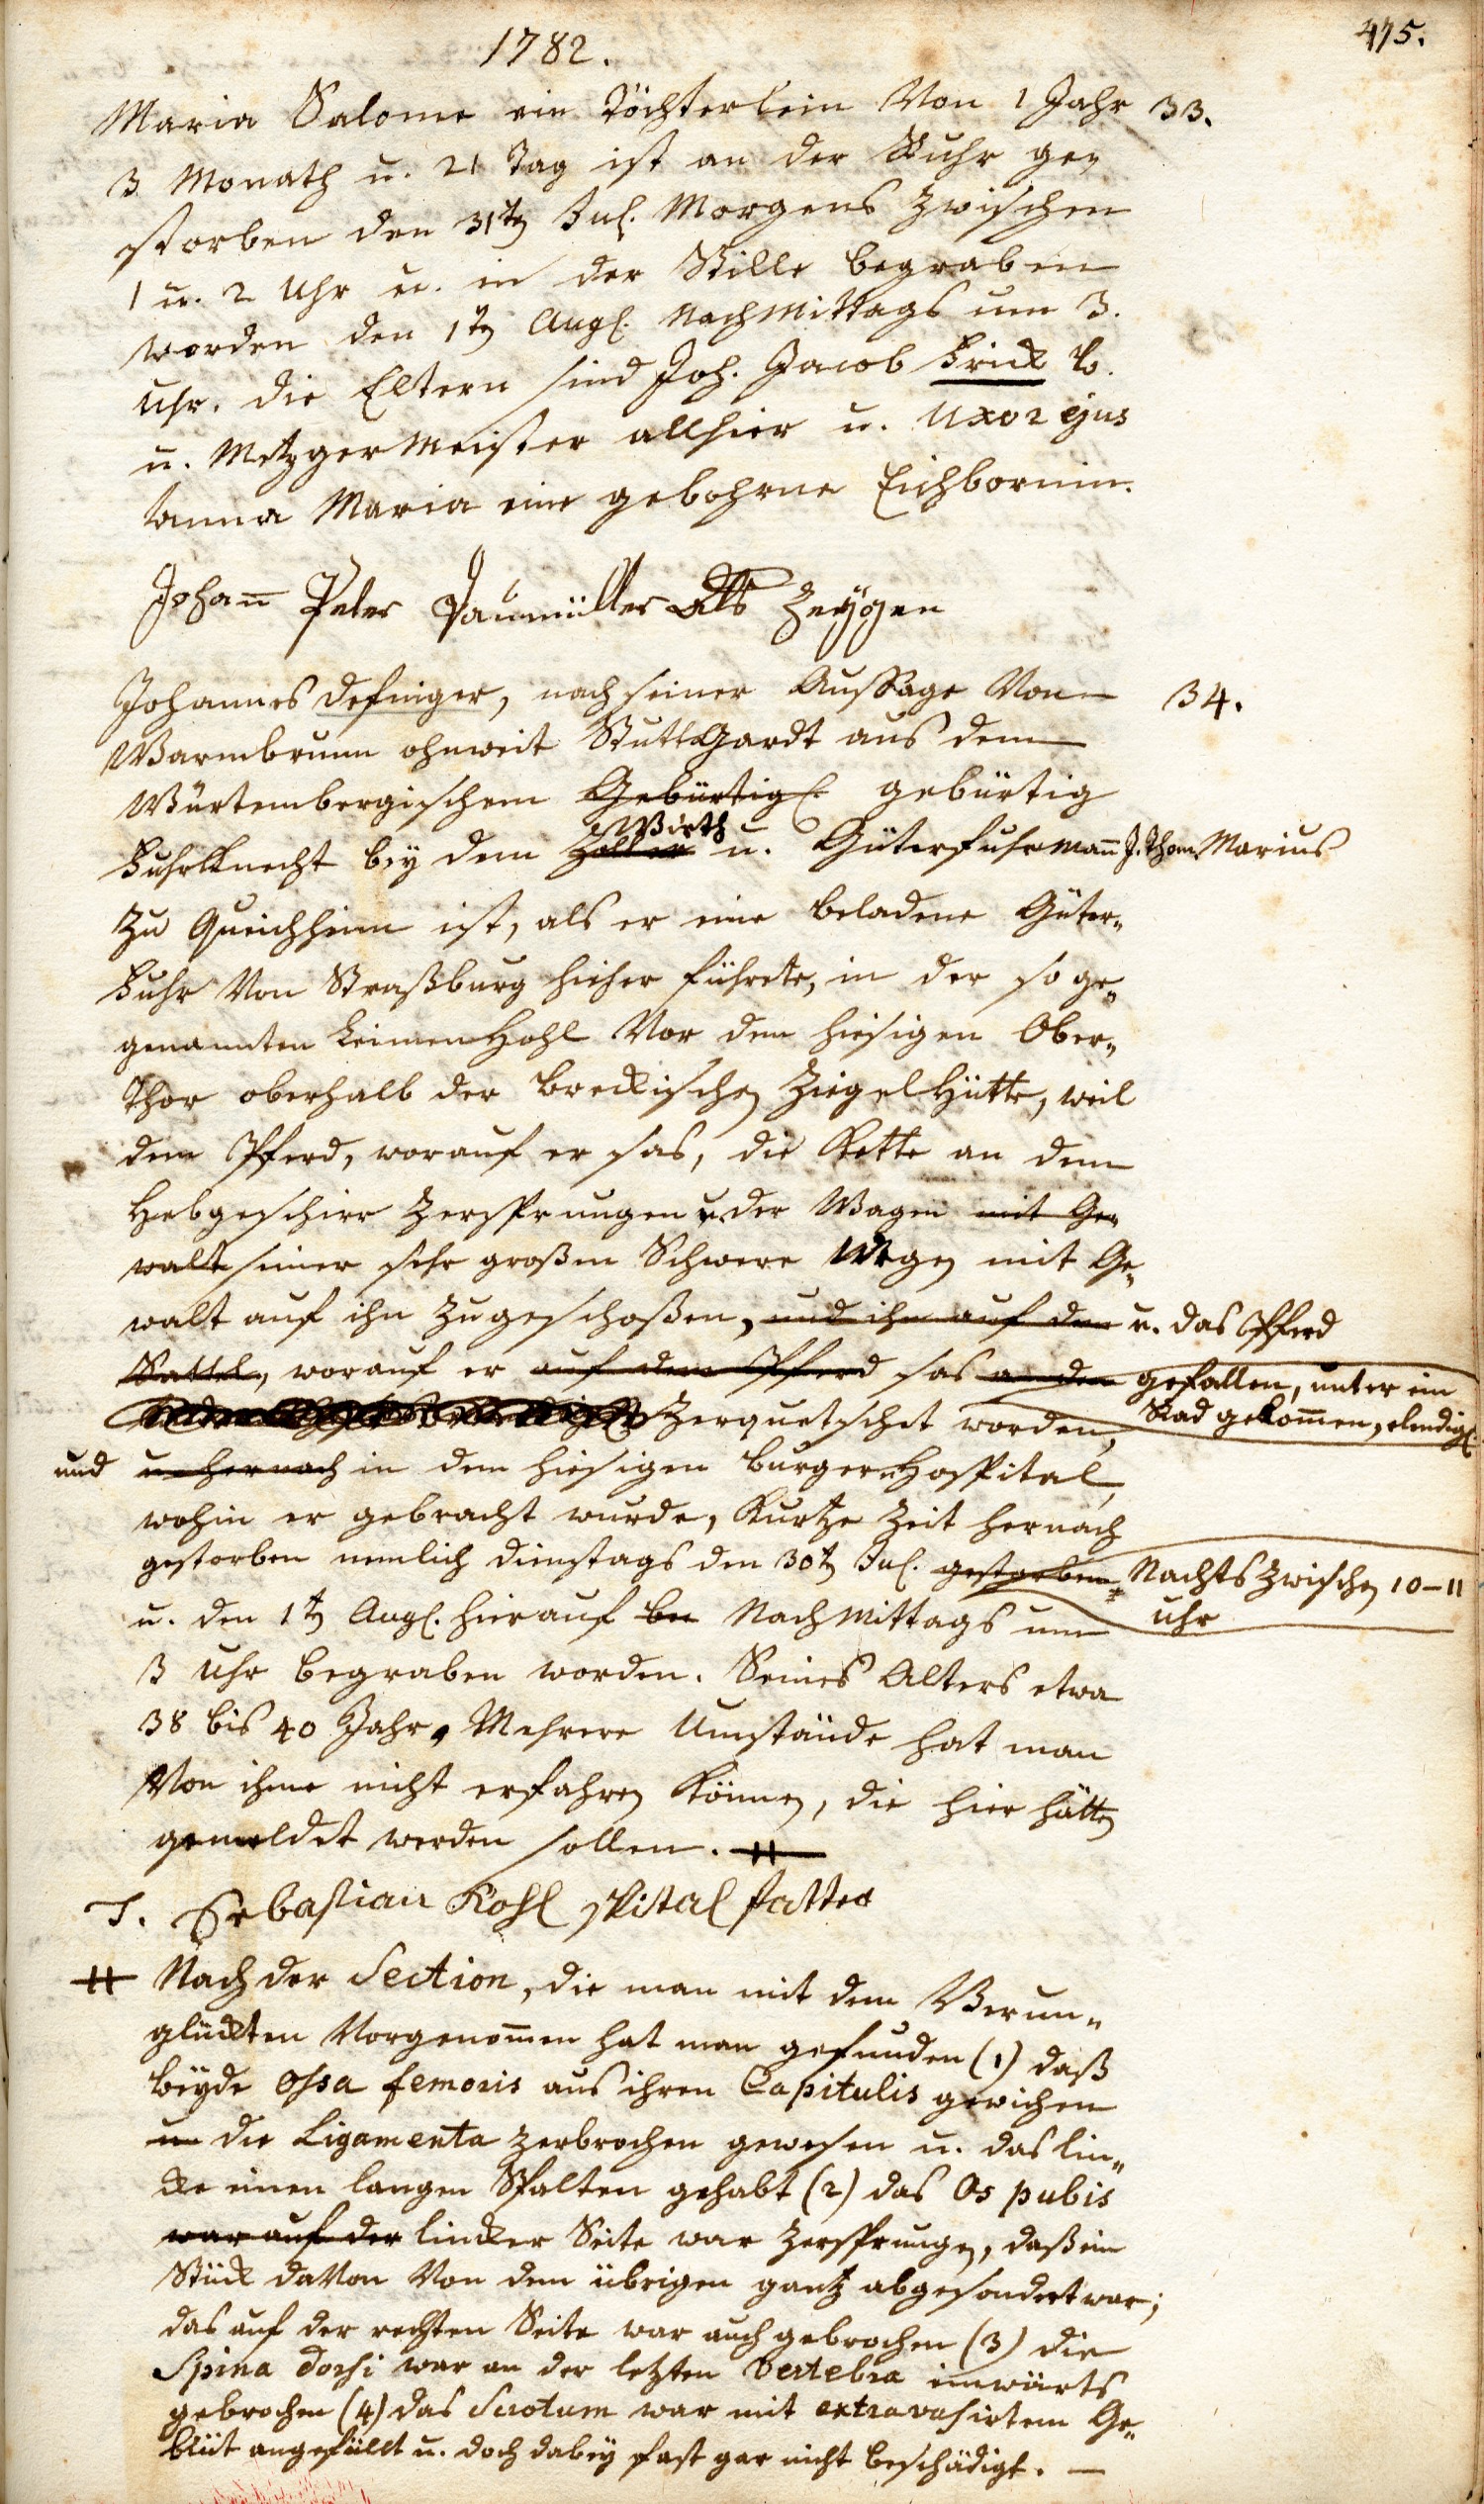 1782.
475.
Maria Salome ein Töchterlein Von 1 Jahr 33.
3 Monath u. 21 Tag ist an der Ruhr ge„
storben den 31t Jul. Morgens zwischen
1 u. 2 Uhr u. in der Stille begraben
worden den 1t Aug. Nachmittags um 3.
Uhr. die Eltern sind Joh. Jacob Frick b.
u. Metzgermeister allhier u. Uxor ejus
Anna Maria eine gebohrne Eichbornin.
Johann Peter Daumüller als Zeygen
Johannes Definger, nach seiner Aussage Von 34.
Warmbrunn ohnweit Stuttgardt aus dem
Würtembergischem Gebürtig gebürtig
Fuhrknecht bey dem Zoller Wirth u. Güterfuhrmann J. Thom. Marius
zu Queichheim ist, als er eine beladene Güter„
Fuhr Von Straßburg hieher führete, in der so ge„
genannten Leimen Hohl Vor dem hiesigen Ober„
Thor oberhalb der Breckischen Ziegelhütte, weil
dem Pferd, worauf er sas, die Kette an dem
Hebgeschirr zersprungen u. der Wagen mit Ge„
walt seiner sehr großen Schwere Wegen mit Ge„
walt auf ihn zugeschoßen, und ihn auf dem u. das Pferd
Sattel, worauf er auf dem Pferd sas an den gefallen, unter ein
Rad gekommen, elendig
zerquetschet worden,
und u. hernach in dem hiesigen Burger Hospital,
wohin er gebracht wurde, kurtze Zeit hernach
gestorben nemlich Dienstags den 30t Jul. gestorben Nachts zwischen 10–11
Uhr
u. den 1t Aug. hierauf be Nachmittags um
3 Uhr begraben worden. Seines Alters etwa
38 bis 40 Jahr. Mehrere Umstände hat man
Von ihme nicht erfahren können, die hier hätten
gemeldet werden sollen. #
T. Sebastian Kohl spital fatter
# Nach der Section, die man mit dem Verun„
glückten Vorgenommen hat man gefunden (1) daß
beyde Ossa femoris aus ihren Capitulis gewichen
u. die Ligamenta zerbrochen gewesen u. das lin„
cke einen langen Spalten gehabt (2) das Os pubis
war auf der lincker Seite war zersprungen, daß ein
Stück daVon Von dem übrigen gantz abgesondert war;
das auf der rechten Seite war auch gebrochen (3) die
Spina dorsi war an der letzten Vertebra einwärts
gebrochen (4) das Scrotum war mit extravasirtem Ge„
blüt angefüllt u. doch dabey fast gar nicht beschädigt. —